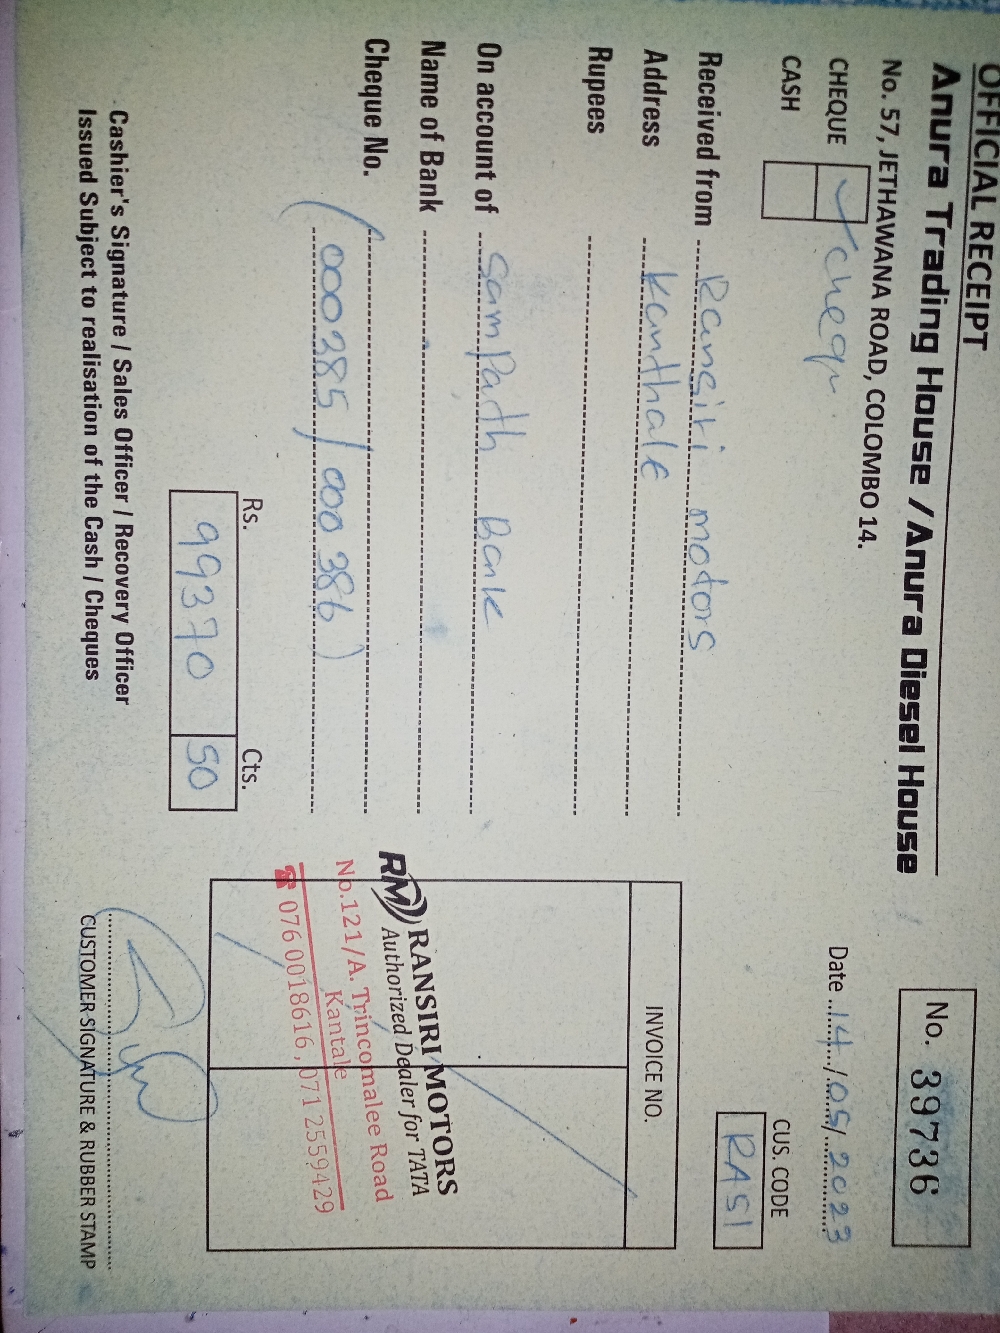 OFFICIAL RECEIPT
Anura Trading House / Anura Diesel House
No. 57, JETHAWANA ROAD, COLOMBO 14.
No. 39736
Date 14/05/2023
CHEQUE cheqr.
CASH
CUS. CODE
RASI
Received from Ransiri motors
Address Kanthale
Rupees
On account of Sampath Bank
Name of Bank
Cheque No.
(000385 / 000386)
INVOICE NO.
RM RANSIRI MOTORS
Authorized Dealer for TATA
No.121/A. Trincomalee Road
Kantale
☎ 076 0018616, 071 2559429
Rs. Cts.
99370 50
Cashier's Signature / Sales Officer / Recovery Officer
Issued Subject to realisation of the Cash / Cheques
CUSTOMER SIGNATURE & RUBBER STAMP